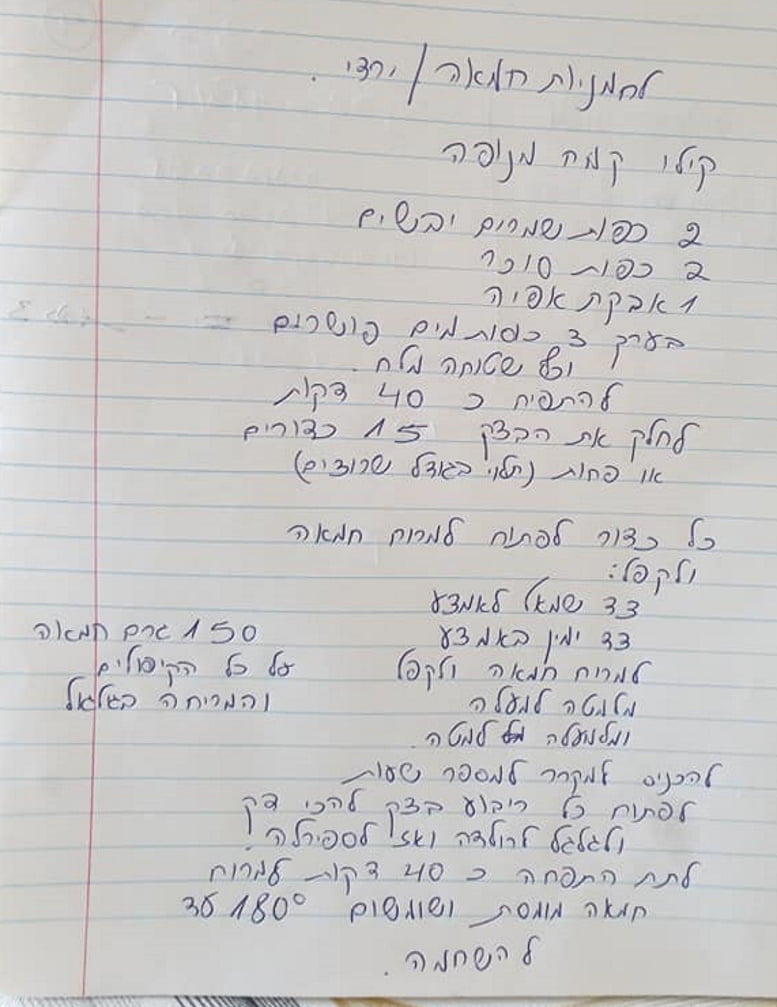 לחמניות חמאה / ירדי.
קילו קמח מנופה
2 כפות שמרים יבשים
2 כפות סוכר
1 אבקת אפיה
בערך 3 כוסות מים פושרים
וכף שטוחה מלח.
להתפיח כ 40 דקות
לחלק את הבצק 15 כדורים
או פחות (תלוי בגודל שרוצים)
כל כדור לפתוח למרוח חמאה
ולקפל:
צד שמאל לאמצע
צד ימין באמצע
למרוח חמאה ולקפל
מלמטה למעלה
ומלמעלה למטה.
150 גרם חמאה
על כל הקיפולים
והמריחה בגלגול
להכניס למקרר למספר שעות
לפתוח כל ריבוע בצק להכי דק
ולגלגל לרולדה ואז לספירלה.
לתת התפחה כ 40 דקות למרוח
חמאה מומסת ושומשום 180° עד
להשחמה.